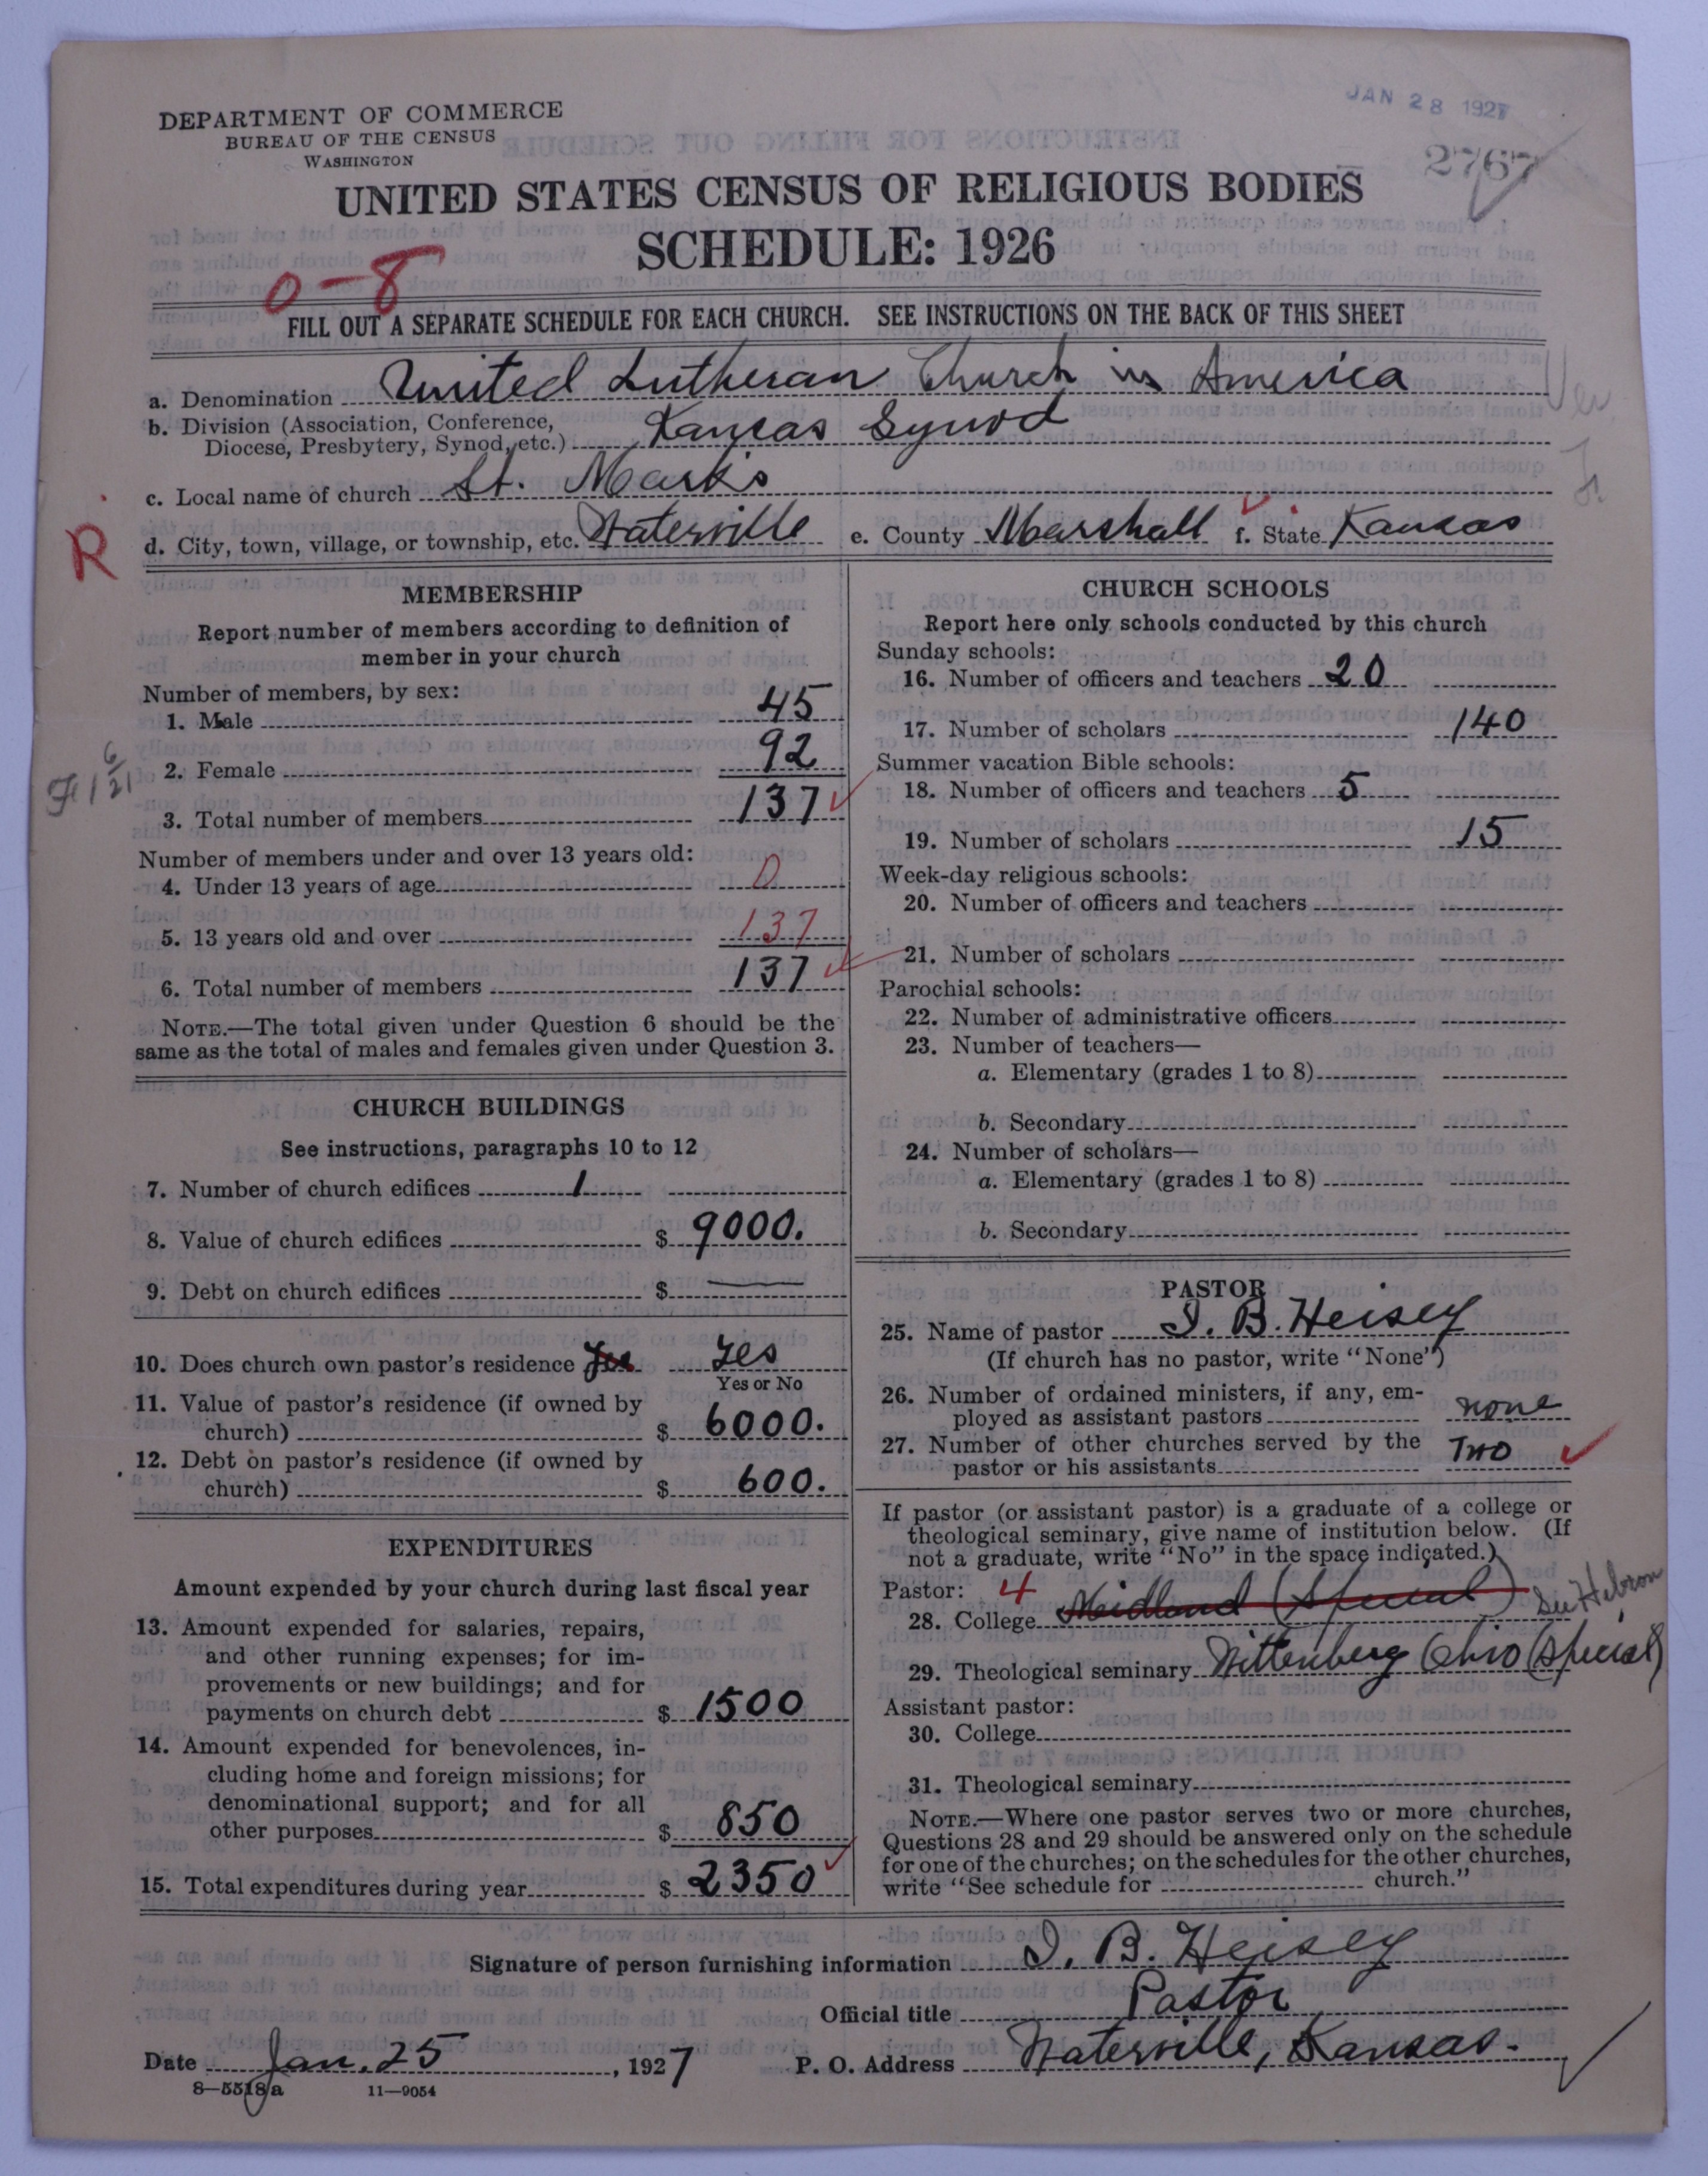 JAN 28 1927
DEPARTMENT OF COMMERCE
BUREAU OF THE CENSUS
WASHINGTON
2767
UNITED STATES CENSUS OF RELIGIOUS BODIES
SCHEDULE: 1926
0-8
FILL OUT A SEPARATE SCHEDULE FOR EACH CHURCH. SEE INSTRUCTIONS ON THE BACK OF THIS SHEET
a. Denomination United Lutheran Church in America
b. Division (Association, Conference,
Diocese, Presbytery, Synod, etc.) Kansas Synod
c. Local name of church St. Mark's
R
d. City, town, village, or township, etc. Waterville e. County Marshall f. State Kansas
MEMBERSHIP
Report number of members according to definition of
member in your church
Number of members, by sex:
1. Male 45
2. Female 92
3. Total number of members 137
Number of members under and over 13 years old:
4. Under 13 years of age 0
5. 13 years old and over 137
6. Total number of members 137
NOTE.—The total given under Question 6 should be the
same as the total of males and females given under Question 3.
CHURCH BUILDINGS
See instructions, paragraphs 10 to 12
7. Number of church edifices 1
8. Value of church edifices $ 9000.
9. Debt on church edifices $ —
10. Does church own pastor's residence Yes Yes
Yes or No
11. Value of pastor's residence (if owned by
church) $ 6000.
12. Debt on pastor's residence (if owned by
church) $ 600.
EXPENDITURES
Amount expended by your church during last fiscal year
13. Amount expended for salaries, repairs,
and other running expenses; for im-
provements or new buildings; and for
payments on church debt $ 1500
14. Amount expended for benevolences, in-
cluding home and foreign missions; for
denominational support; and for all
other purposes $ 850
15. Total expenditures during year $ 2350
CHURCH SCHOOLS
Report here only schools conducted by this church
Sunday schools:
16. Number of officers and teachers 20
17. Number of scholars 140
Summer vacation Bible schools:
18. Number of officers and teachers 5
19. Number of scholars 15
Week-day religious schools:
20. Number of officers and teachers
21. Number of scholars
Parochial schools:
22. Number of administrative officers
23. Number of teachers—
a. Elementary (grades 1 to 8)
b. Secondary
24. Number of scholars—
a. Elementary (grades 1 to 8)
b. Secondary
PASTOR
25. Name of pastor I. B. Heisey
(If church has no pastor, write "None")
26. Number of ordained ministers, if any, em-
ployed as assistant pastors none
27. Number of other churches served by the
pastor or his assistants Two
If pastor (or assistant pastor) is a graduate of a college or
theological seminary, give name of institution below. (If
not a graduate, write "No" in the space indicated.)
Pastor: 4
28. College Midland (Special) See Hebron
29. Theological seminary Wittenberg Ohio (Special)
Assistant pastor:
30. College
31. Theological seminary
NOTE.—Where one pastor serves two or more churches,
Questions 28 and 29 should be answered only on the schedule
for one of the churches; on the schedules for the other churches,
write "See schedule for church."
Signature of person furnishing information I. B. Heisey
Official title Pastor
Date Jan. 25, 1927 P. O. Address Waterville, Kansas.
8—5518a 11—9054